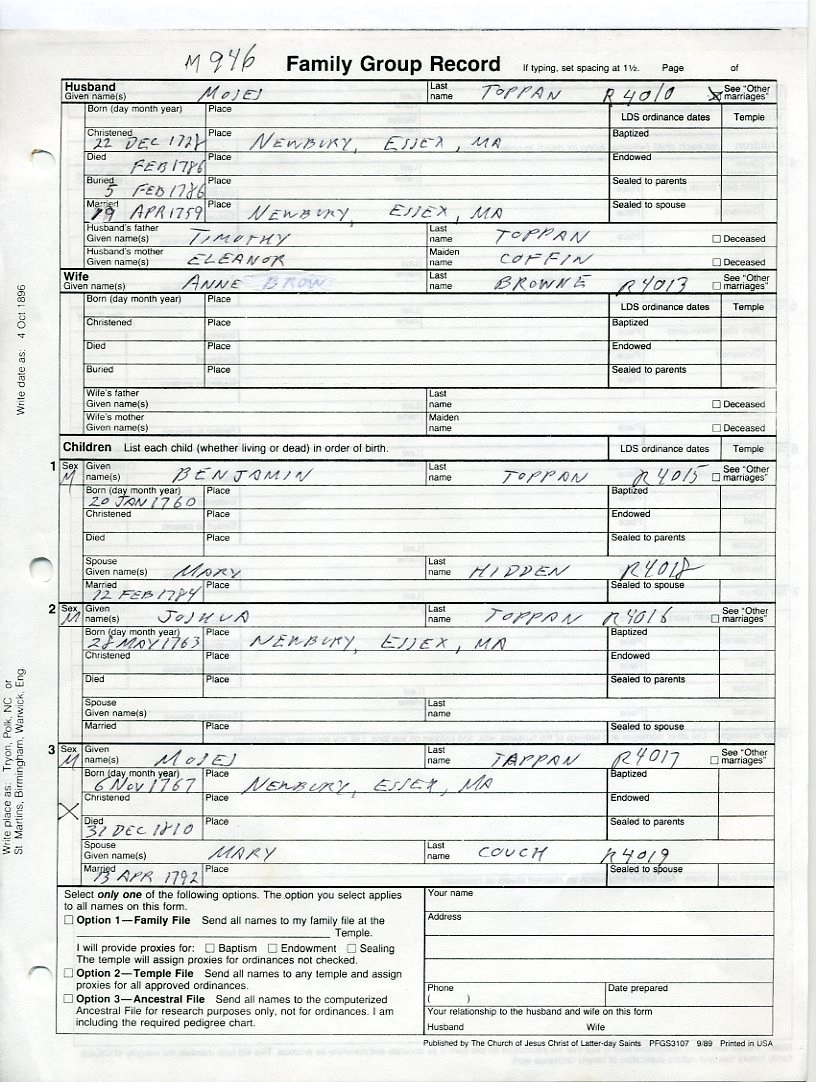 M946 Family Group Record If typing, set spacing at 1½. Page of
Husband
Given name(s) MOSES Last name TOPPAN R4010 X See "Other marriages"
Born (day month year) Place LDS ordinance dates Temple
Christened 22 DEC 1728 Place NEWBURY, ESSEX, MA Baptized
Died FEB 1786 Place Endowed
Buried 5 FEB 1786 Place Sealed to parents
Married 19 APR 1759 Place NEWBURY, ESSEX, MA Sealed to spouse
Husband's father Given name(s) TIMOTHY Last name TOPPAN ☐ Deceased
Husband's mother Given name(s) ELEANOR Maiden name COFFIN ☐ Deceased
Wife
Given name(s) ANNE BROW Last name BROWNE R4013 See "Other ☐ marriages"
Born (day month year) Place LDS ordinance dates Temple
Christened Place Baptized
Died Place Endowed
Buried Place Sealed to parents
Wife's father Given name(s) Last name ☐ Deceased
Wife's mother Given name(s) Maiden name ☐ Deceased
Children List each child (whether living or dead) in order of birth. LDS ordinance dates Temple
1 Sex M Given name(s) BENJAMIN Last name TOPPAN R4015 See "Other ☐ marriages"
Born (day month year) 20 JAN 1760 Place Baptized
Christened Place Endowed
Died Place Sealed to parents
Spouse Given name(s) MARY Last name HIDDEN R4018
Married 12 FEB 1784 Place Sealed to spouse
2 Sex M Given name(s) JOSHUA Last name TOPPAN R4016 See "Other ☐ marriages"
Born (day month year) 28 MAY 1763 Place NEWBURY, ESSEX, MA Baptized
Christened Place Endowed
Died Place Sealed to parents
Spouse Given name(s) Last name
Married Place Sealed to spouse
3 Sex M Given name(s) MOSES Last name TAPPAN R4017 See "Other ☐ marriages"
Born (day month year) 6 NOV 1767 Place NEWBURY, ESSEX, MA Baptized
Christened Place Endowed
X Died 31 DEC 1810 Place Sealed to parents
Spouse Given name(s) MARY Last name COUCH R4019
Married 13 APR 1792 Place Sealed to spouse
Select only one of the following options. The option you select applies
to all names on this form.
☐ Option 1—Family File Send all names to my family file at the
Temple.
I will provide proxies for: ☐ Baptism ☐ Endowment ☐ Sealing
The temple will assign proxies for ordinances not checked.
☐ Option 2—Temple File Send all names to any temple and assign
proxies for all approved ordinances.
☐ Option 3—Ancestral File Send all names to the computerized
Ancestral File for research purposes only, not for ordinances. I am
including the required pedigree chart.
Your name
Address
Phone ( ) Date prepared
Your relationship to the husband and wife on this form
Husband Wife
Published by The Church of Jesus Christ of Latter-day Saints PFGS3107 9/89 Printed in USA
Write date as: 4 Oct 1896
Write place as: Tryon, Polk, NC or
St. Martins, Birmingham, Warwick, Eng